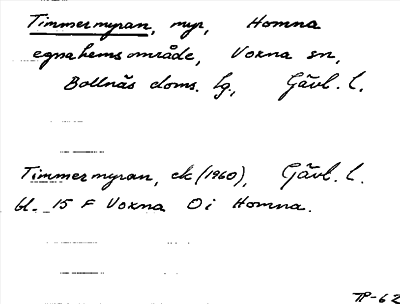 Timmermyran, myr, Homna
egnahemsområde, Voxna sn,
Bollnäs doms. lg, Gävl. l.
Timmermyran, ek (1960), Gävl. l.
bl. 15 F Voxna 0 i Homna.
TP-62